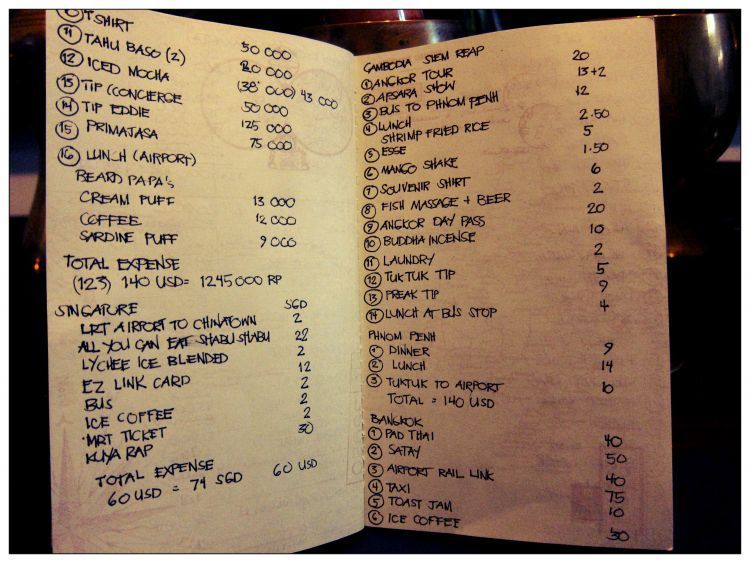 10 T SHIRT
11 TAHU BASO (2) 50 000
12 ICED MOCHA 20 000
13 TIP (CONCIERGE (38 000) 43 000
14 TIP EDDIE 50 000
15 PRIMAJASA 125 000
75 000
16 LUNCH (AIRPORT)
BEARD PAPA'S
CREAM PUFF 13 000
COFFEE 12 000
SARDINE PUFF 9 000
TOTAL EXPENSE
(123) 140 USD = 1245 000 RP
SINGAPURE SGD
LRT AIRPORT TO CHINATOWN 2
ALL YOU CAN EAT SHABU SHABU 22
LYCHEE ICE BLENDED 2
EZ LINK CARD 12
BUS 2
ICE COFFEE 2
MRT TICKET 2
KUYA RAP 30
TOTAL EXPENSE 60 USD
60 USD = 74 SGD
CAMBODIA SIEM REAP
1 ANGKOR TOUR 20
2 APSARA SHOW 13+2
3 BUS TO PHNOM PENH 12
4 LUNCH
SHRIMP FRIED RICE 2.50
5 ESSE 5
6 MANGO SHAKE 1.50
7 SOUVENIR SHIRT 6
8 FISH MASSAGE + BEER 2
9 ANGKOR DAY PASS 20
10 BUDDHA INCENSE 10
11 LAUNDRY 2
12 TUKTUK TIP 5
13 FREAK TIP 9
14 LUNCH AT BUS STOP 4
PHNOM PENH
1 DINNER 9
2 LUNCH 14
3 TUKTUK TO AIRPORT 10
TOTAL = 140 USD
BANGKOK
1 PAD THAI 40
2 SATAY 50
3 AIRPORT RAIL LINK 40
4 TAXI 75
5 TOAST JAM 10
6 ICE COFFEE 30